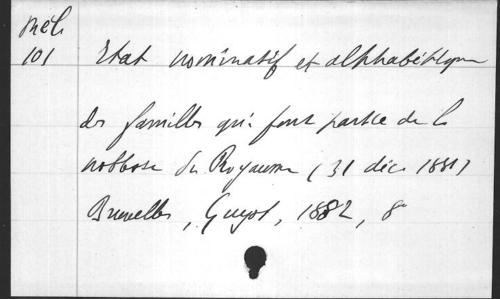 Mél.
101
Etat nominatif et alphabétique
des familles qui font partie de la
noblesse du Royaume (31 déc. 1881)
Bruxelles, Guyot, 1882, 8°